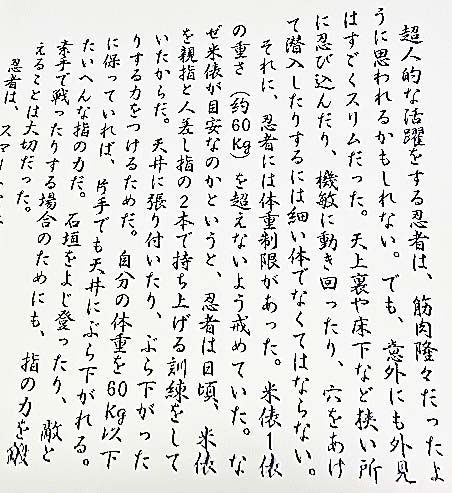 超人的な活躍をする忍者は、筋肉隆々だったよ
うに思われるかもしれない。でも、意外にも外見
はすごくスリムだった。天上裏や床下など狭い所
に忍び込んだり、機敏に動き回ったり、穴をあけ
て潜入したりするには細い体でなくてはならない。
それに、忍者には体重制限があった。米俵1俵
の重さ（約60Kg）を超えないよう戒めていた。な
ぜ米俵が目安なのかというと、忍者は日頃、米俵
を親指と人差し指の2本で持ち上げる訓練をして
いたからだ。天井に張り付いたり、ぶら下がった
りする力をつけるためだ。自分の体重を60Kg以下
に保っていれば、片手でも天井にぶら下がれる。
たいへんな指の力だ。石垣をよじ登ったり、敵と
素手で戦ったりする場合のためにも、指の力を鍛
えることは大切だった。
忍者は、スマ